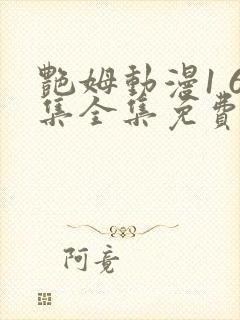 艷姆動漫1 6
集全集免費
阿竟